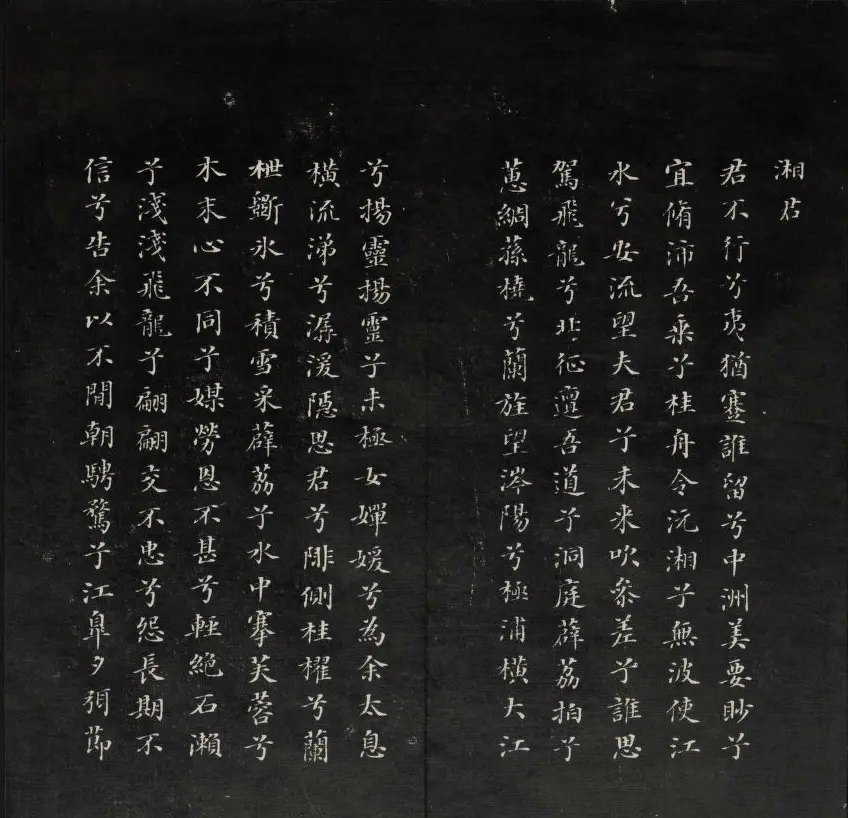 湘君
君不行兮夷猶蹇誰留兮中洲美要眇兮
宜脩沛吾乘兮桂舟令沅湘兮無波使江
水兮安流望夫君兮未來吹參差兮誰思
駕飛龍兮北征邅吾道兮洞庭薜荔拍兮
蕙綢蓀橈兮蘭旌望涔陽兮極浦橫大江
兮揚靈揚靈兮未極女嬋媛兮為余太息
橫流涕兮潺湲隱思君兮陫側桂櫂兮蘭
枻斲冰兮積雪采薜荔兮水中搴芙蓉兮
木末心不同兮媒勞恩不甚兮輕絕石瀨
兮淺淺飛龍兮翩翩交不忠兮怨長期不
信兮告余以不閒朝騁騖兮江皐夕弭節